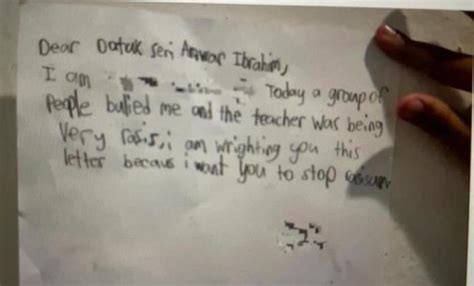 Dear Datuk Seri Anwar Ibrahim,
I am Today a group of
People bulied me and the teacher was being
Very i am wrighting you this
letter becaus i want you to stop